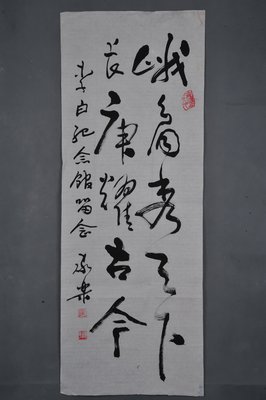 峨眉秀天下
长庚耀古今
李白纪念馆留念